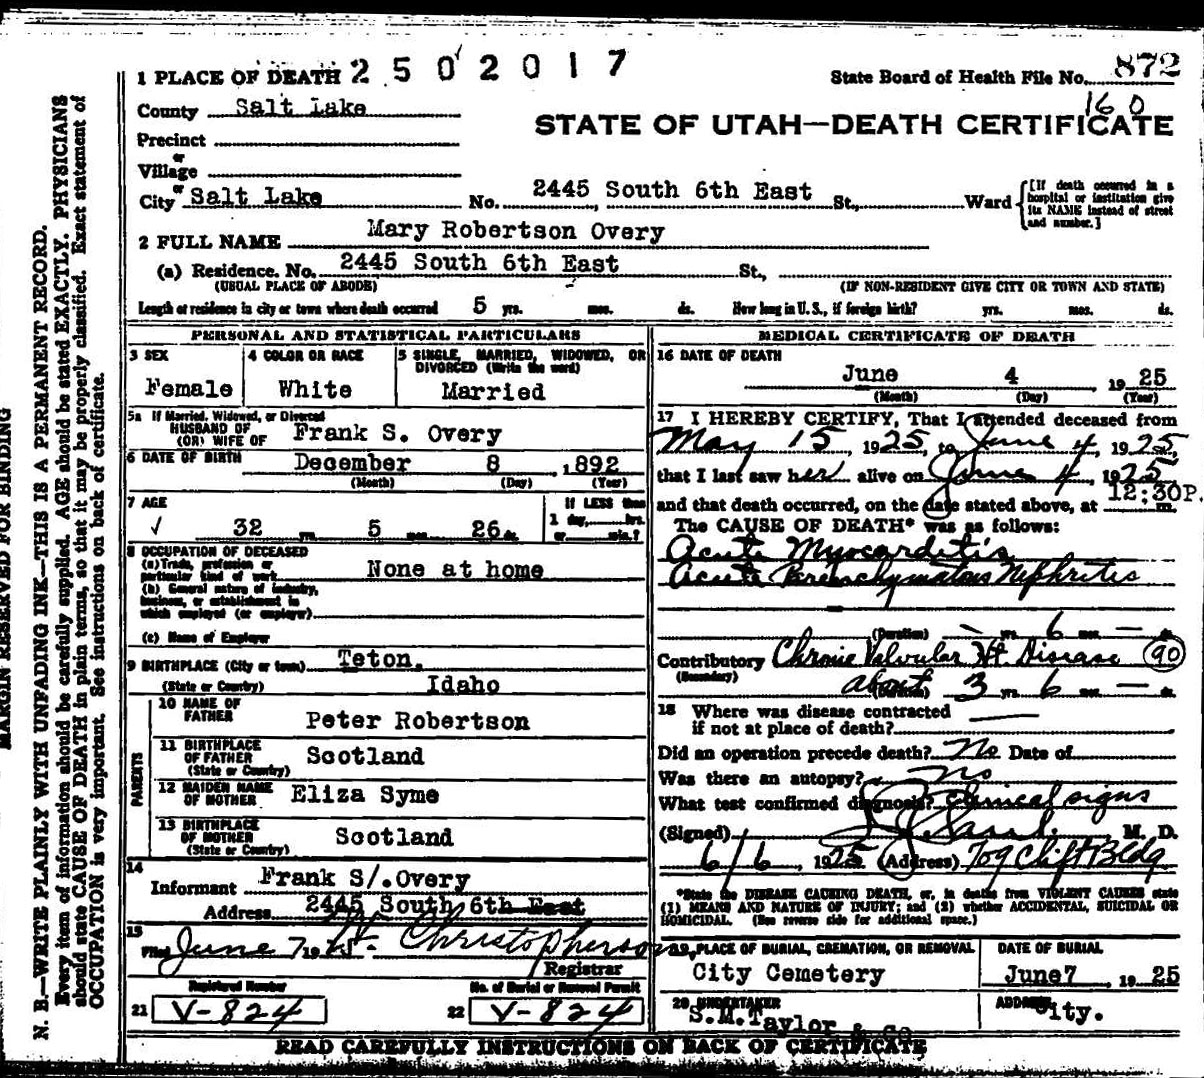 1 PLACE OF DEATH 2 5 0 2 0 1 7
State Board of Health File No. 872
160
County Salt Lake
STATE OF UTAH—DEATH CERTIFICATE
Precinct
or
Village
or
City Salt Lake No. 2445 South 6th East St., Ward
[If death occurred in a hospital or institution give its NAME instead of street and number.]
2 FULL NAME Mary Robertson Overy
(a) Residence. No. 2445 South 6th East St.,
(USUAL PLACE OF ABODE) (IF NON-RESIDENT GIVE CITY OR TOWN AND STATE)
Length of residence in city or town where death occurred 5 yrs. mos. ds. How long in U. S., if foreign birth? yrs. mos. ds.
PERSONAL AND STATISTICAL PARTICULARS
3 SEX
Female
4 COLOR OR RACE
White
5 SINGLE, MARRIED, WIDOWED, OR
DIVORCED (Write the word)
Married
5a If Married, Widowed, or Divorced
HUSBAND OF
(OR) WIFE OF Frank S. Overy
6 DATE OF BIRTH December 8 ,1892
(Month) (Day) (Year)
7 AGE
32 yrs. 5 mos. 26 ds.
If LESS than
1 day, hrs.
or min.?
8 OCCUPATION OF DECEASED
(a) Trade, profession or
particular kind of work None at home
(b) General nature of industry,
business, or establishment in
which employed (or employer)
(c) Name of Employer
9 BIRTHPLACE (City or town) Teton,
(State or Country) Idaho
PARENTS
10 NAME OF
FATHER Peter Robertson
11 BIRTHPLACE
OF FATHER Scotland
(State or Country)
12 MAIDEN NAME
OF MOTHER Eliza Syme
13 BIRTHPLACE
OF MOTHER Scotland
(State or Country)
14
Informant Frank S/.Overy
Address 2445 South 6th East
15
Filed June 7 1925 Christopherson
Registrar
Registered Number
21 V-824
No. of Burial or Removal Permit
22 V-824
MEDICAL CERTIFICATE OF DEATH
16 DATE OF DEATH
June 4 19 25
(Month) (Day) (Year)
17 I HEREBY CERTIFY, That I attended deceased from
May 15, 1925, to June 4, 1925,
that I last saw her alive on June 4, 1925
and that death occurred, on the date stated above, at 12:30P. m.
The CAUSE OF DEATH* was as follows:
Acute Myocarditis
Acute Parenchymatous Nephritis
(Duration) — yrs. 6 mos. — ds.
Contributory Chronic Valvular Ht. Disease 90
(Secondary)
about (Duration) 3 yrs. 6 mos. — ds.
18 Where was disease contracted
if not at place of death?
Did an operation precede death? No Date of
Was there an autopsy? No
What test confirmed diagnosis? Clinical signs
(Signed) M. D.
6/6, 1925 (Address) 709 Clift Bldg
*State the DISEASE CAUSING DEATH, or, in deaths from VIOLENT CAUSES state
(1) MEANS AND NATURE OF INJURY; and (2) whether ACCIDENTAL, SUICIDAL OR
HOMICIDAL. (See reverse side for additional space.)
19 PLACE OF BURIAL, CREMATION, OR REMOVAL
City Cemetery
DATE OF BURIAL
June7 19 25
20 UNDERTAKER
S.M.Taylor & Co
ADDRESS
City.
READ CAREFULLY INSTRUCTIONS ON BACK OF CERTIFICATE
MARGIN RESERVED FOR BINDING
N. B.—WRITE PLAINLY WITH UNFADING INK—THIS IS A PERMANENT RECORD.
Every item of information should be carefully supplied. AGE should be stated EXACTLY. PHYSICIANS
should state CAUSE OF DEATH in plain terms, so that it may be properly classified. Exact statement of
OCCUPATION is very important. See instructions on back of certificate.